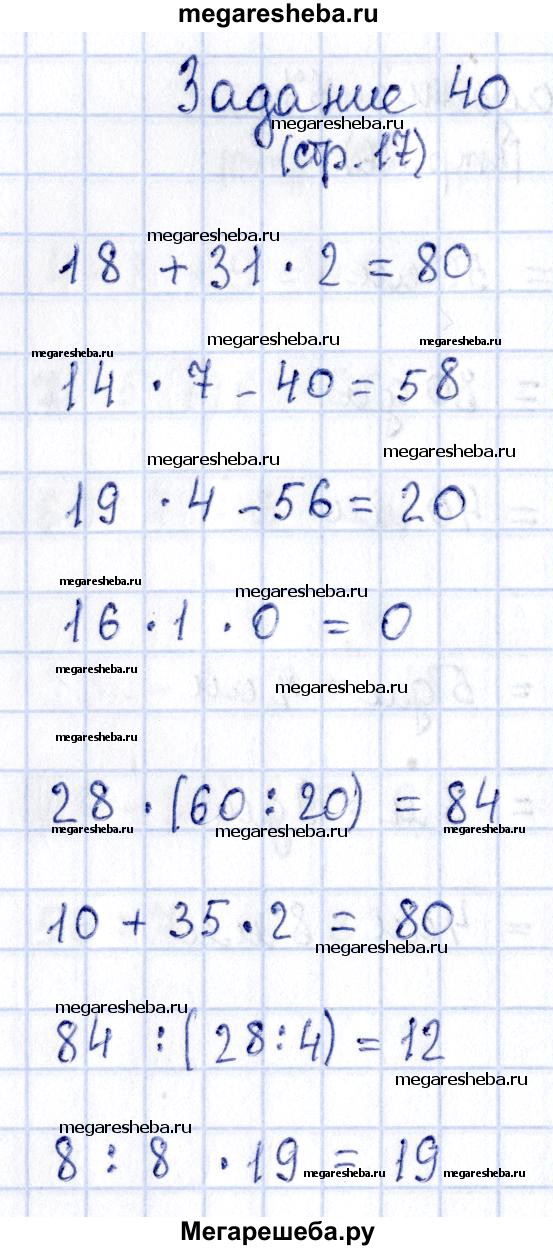 megaresheba.ru
Задание 40
megaresheba.ru
(стр. 17)
megaresheba.ru
18 + 31 · 2 = 80
megaresheba.ru megaresheba.ru megaresheba.ru
14 · 7 - 40 = 58
megaresheba.ru megaresheba.ru
19 · 4 - 56 = 20
megaresheba.ru megaresheba.ru
16 · 1 · 0 = 0
megaresheba.ru megaresheba.ru
megaresheba.ru
28 · (60 : 20) = 84
megaresheba.ru megaresheba.ru megaresheba.ru
10 + 35 · 2 = 80
megaresheba.ru
megaresheba.ru
84 : (28 : 4) = 12
megaresheba.ru
megaresheba.ru
8 : 8 · 19 = 19
megaresheba.ru megaresheba.ru
Мегарешеба.ру